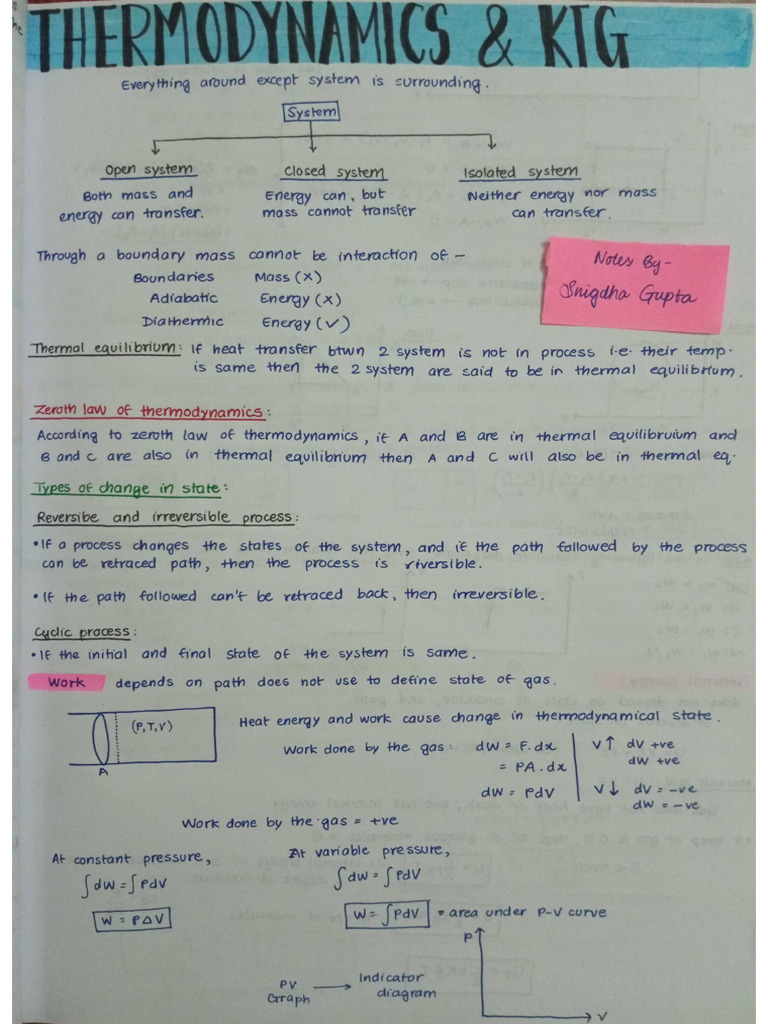 THERMODYNAMICS & KTG
Everything around except system is surrounding.
System
Open system
Both mass and
energy can transfer.
Closed system
Energy can, but
mass cannot transfer
Isolated system
Neither energy nor mass
can transfer.
Through a boundary mass cannot be interaction of –
Boundaries Mass (X)
Adiabatic Energy (X)
Diathermic Energy (✓)
Notes By-
Snigdha Gupta
Thermal equilibrium: If heat transfer btwn 2 system is not in process i.e. their temp.
is same then the 2 system are said to be in thermal equilibrium.
Zeroth law of thermodynamics:
According to zeroth law of thermodynamics, if A and B are in thermal equilibruium and
B and C are also in thermal equilibrium then A and C will also be in thermal eq.
Types of change in state:
Reversibe and irreversible process:
• If a process changes the states of the system, and if the path followed by the process
can be retraced path, then the process is riversible.
• If the path followed can't be retraced back, then irreversible.
Cyclic process:
• If the initial and final state of the system is same.
Work depends on path does not use to define state of gas.
(P,T,V)
A
Heat energy and work cause change in thermodynamical state.
Work done by the gas: dW = F.dx
= PA.dx
dW = PdV
V↑ dV +ve
dW +ve
V↓ dV = -ve
dW = -ve
Work done by the gas = +ve
At constant pressure,
∫dW = ∫PdV
W = PΔV
At variable pressure,
∫dW = ∫PdV
W = ∫PdV = area under P-V curve
PV
Graph → Indicator
diagram
P
V